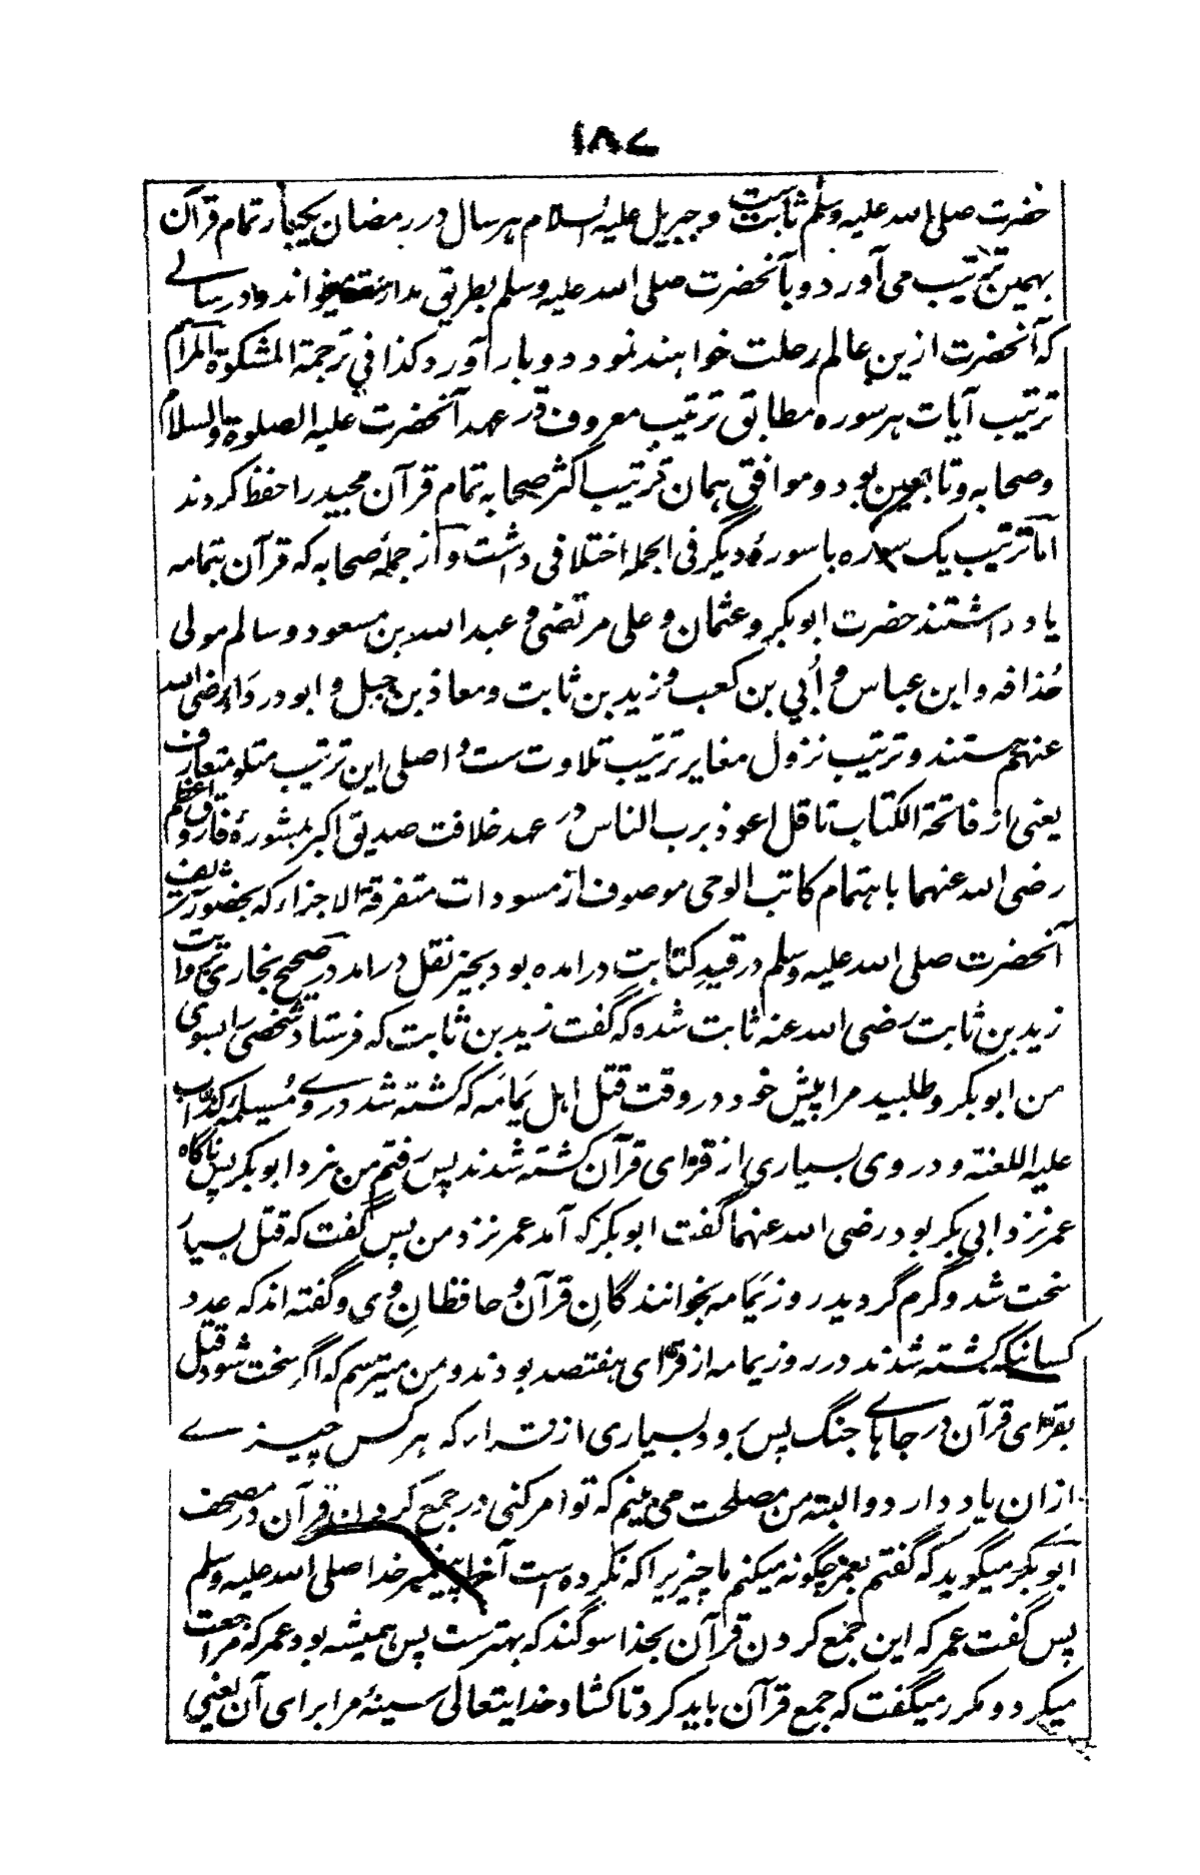 ۱۸۷
حضرت صلی الله علیه وسلم ثابت ست و جبریل علیه السلام هر سال در رمضان یکبار تمام قرآن
بهمین ترتیب می آورد و با آنحضرت صلی الله علیه وسلم بطریق مدارسه میخواند و در سالے
که آنحضرت ازین عالم رحلت خواهند نمود دو بار آورد کذا فی ترجمة المشکوة المرام
ترتیب آیات هر سوره مطابق ترتیب معروف در عهد آنحضرت علیه الصلوة والسلام
و صحابه و تابعین بود و موافق همان ترتیب اکثر صحابه تمام قرآن مجید را حفظ کردند
اما ترتیب یک سوره با سورهٔ دیگر فی الجمله اختلافی داشت و از جملهٔ صحابه که قرآن بتمامه
یاد داشتند حضرت ابوبکر و عثمان و علی مرتضی و عبدالله بن مسعود و سالم مولی
حُذافه و ابن عباس و أُبي بن کعب و زید بن ثابت و معاذ بن جبل و ابو درداء رضی الله
عنهم هستند و ترتیب نزول مغایر ترتیب تلاوت ست و اصلی این ترتیب متلو متعارف
یعنی از فاتحة الکتاب تا قل اعوذ برب الناس در عهد خلافت صدیق اکبر بمشورهٔ فاروق اعظم
رضی الله عنهما باهتمام کاتب الوحی موصوف از مسودات متفرقة الاجزاء که بحضور شریف
آنحضرت صلی الله علیه وسلم در قیدِ کتابت درامده بود بحیز نقل درامد در صحیح بخاری بروایت
زید بن ثابت رضی الله عنه ثابت شده که گفت زید بن ثابت که فرستاد شخصی را بسوی
من ابوبکر و طلبید مرا پیش خود در وقت قتل اهل یَمامَه که کشته شد درو ے مُسیلمه کذاب
علیه اللعنة و در وی بسیاری از قرّای قرآن کشته شدند پس رفتم من نزد ابوبکر پس ناگاه
عمر نزد ابی بکر بود رضی الله عنهما گفت ابوبکر که آمد عمر نزد من پس گفت که قتل بسیار
سخت شد و گرم گردید روز یَمامه بخوانندگانِ قرآن و حافظانِ وی و گفته اند که عدد
کسانیکه کشته شدند در روز یمامه از قرّای هفتصد بودند و من میترسم که اگر سخت شود قتل
بقرّای قرآن در جاهاے جنگ پس برود بسیاری از قرآن که هر کس چیزے
ازان یاد دارد و البته من مصلحت می بینم که تو امر کنی در جمع کردن قرآن در مصحف
ابوبکر میگوید که گفتم بعمر چگونه میکنم ما چیزیرا که نکرده است آنرا پیغمبر خدا صلی الله علیه وسلم
پس گفت عمر که این جمع کردن قرآن بخدا سوگند که بهترست پس همیشه بود عمر که مراجعت
میکرد و مکرر میگفت که جمع قرآن باید کرد تا کشاد خدایتعالی سینهٔ مرا برای آن یعنی